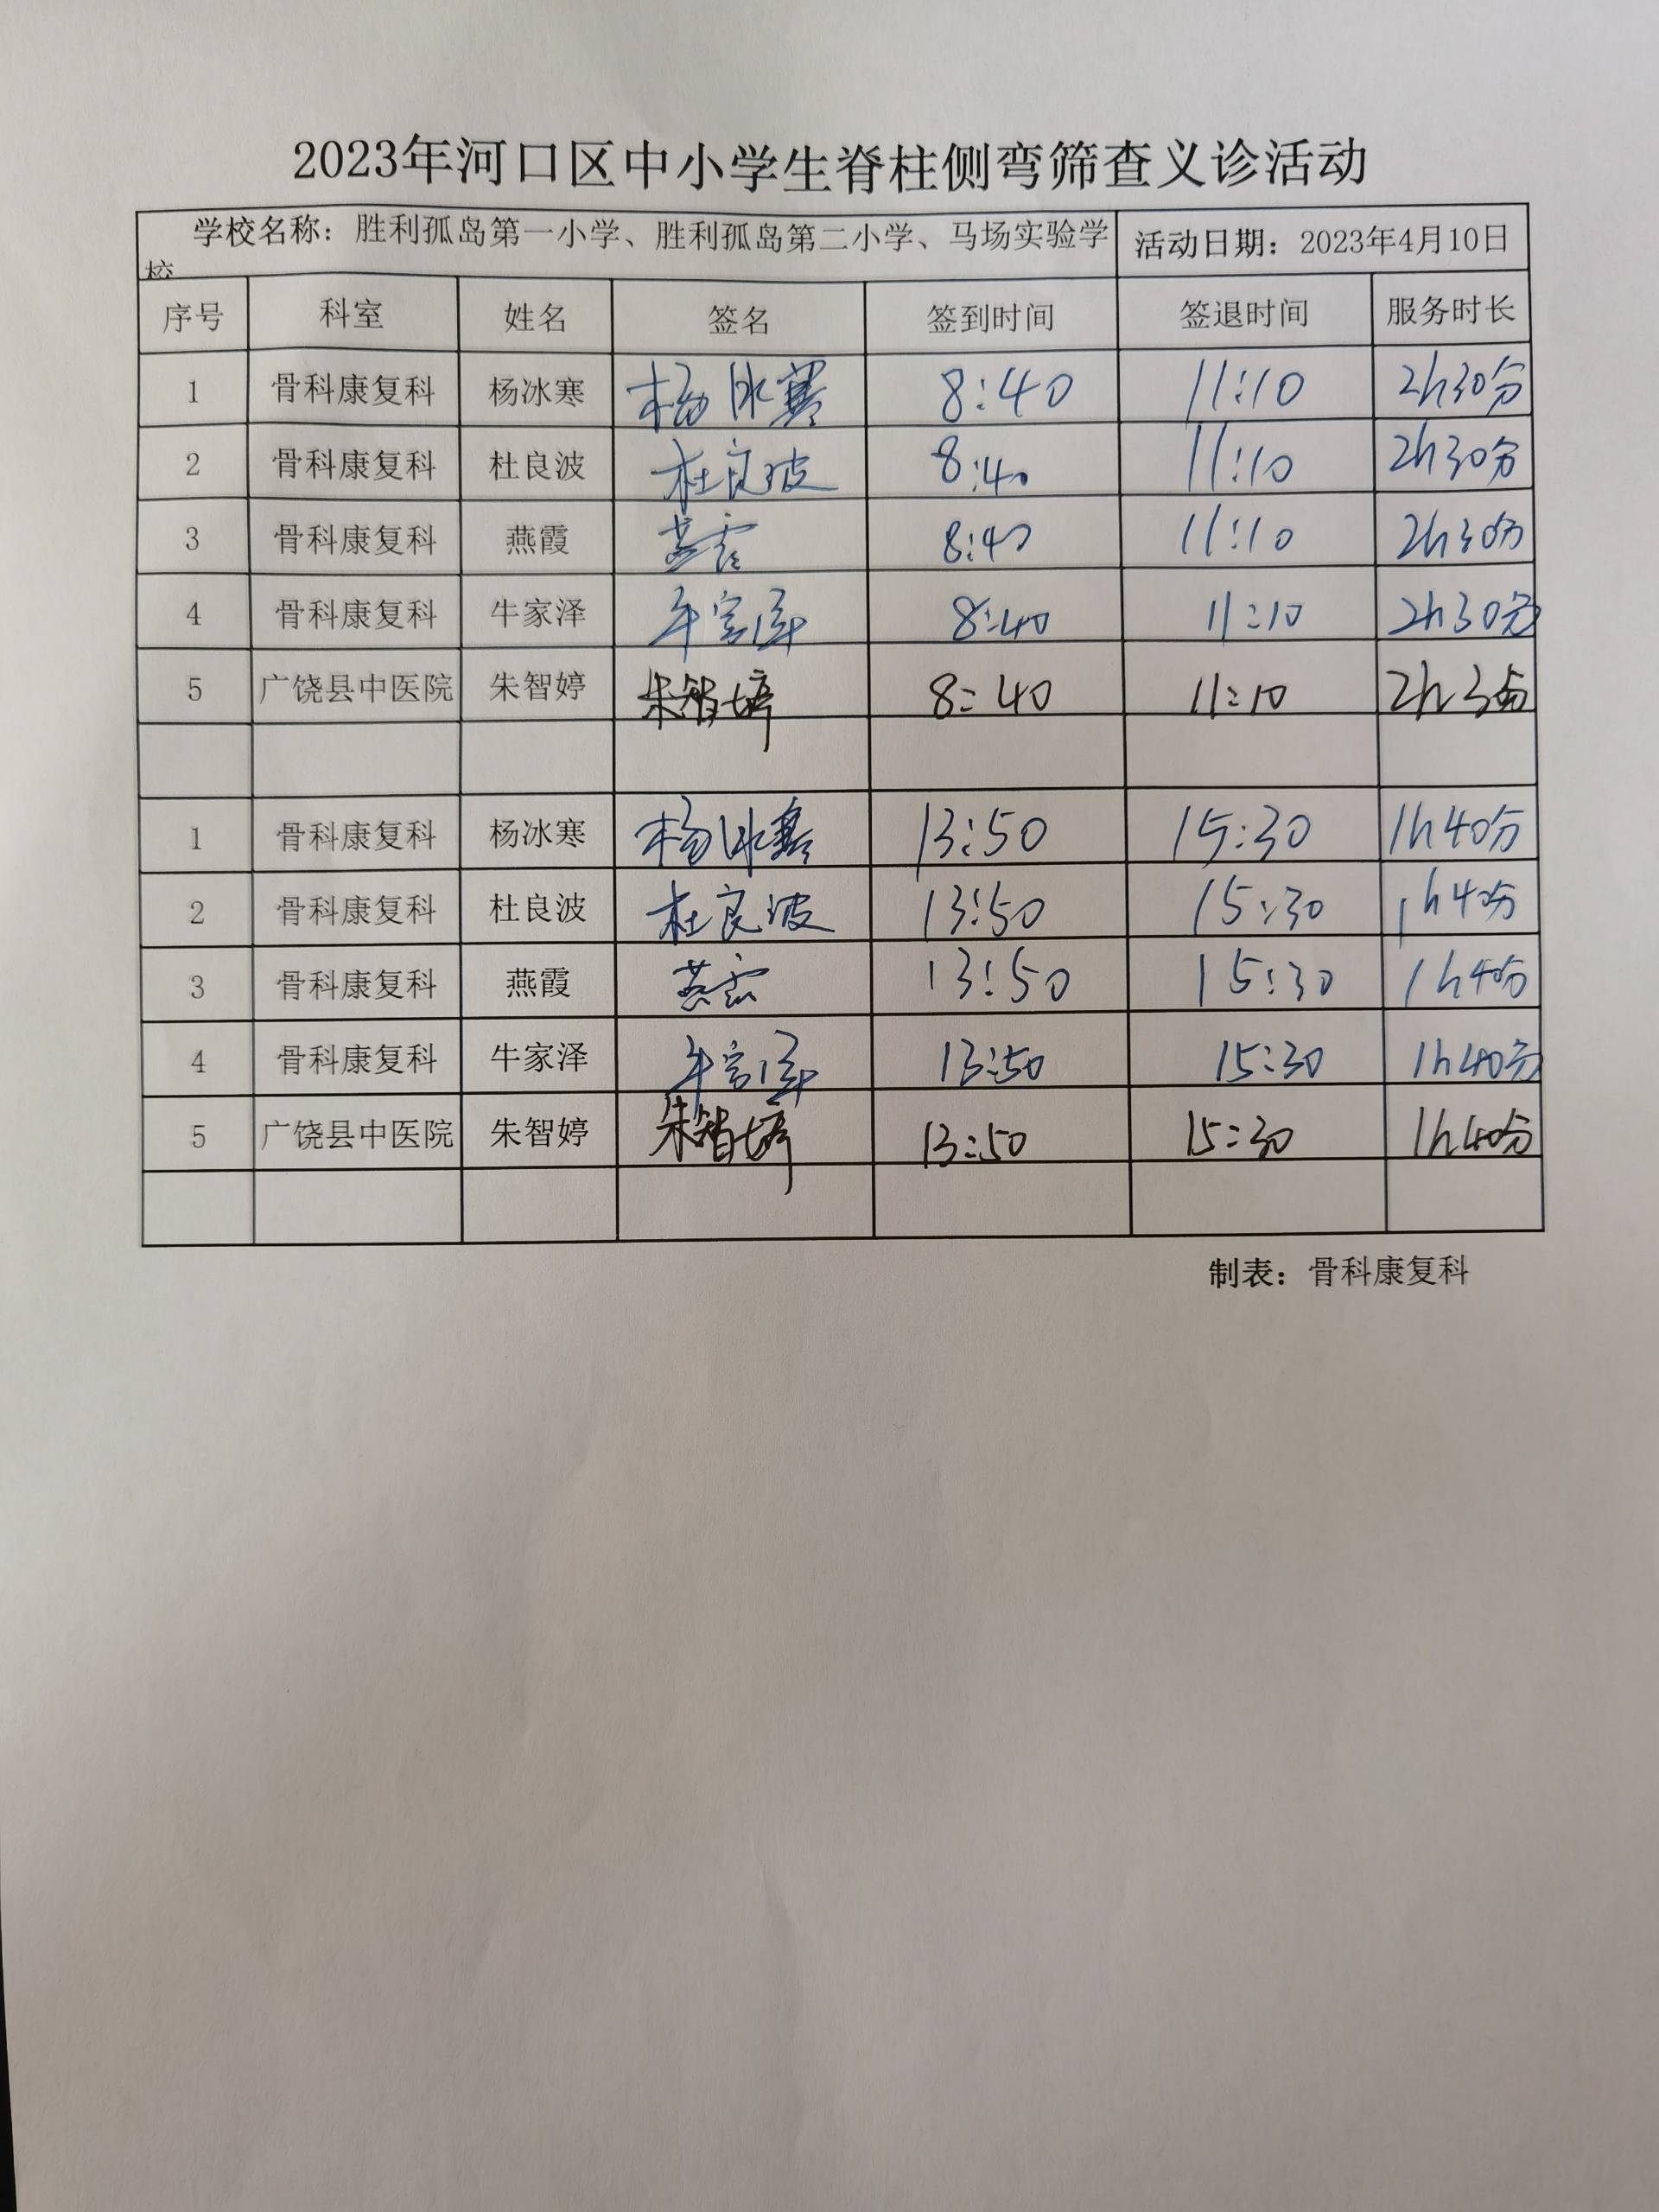 2023年河口区中小学生脊柱侧弯筛查义诊活动
学校名称：胜利孤岛第一小学、胜利孤岛第二小学、马场实验学校 活动日期：2023年4月10日
序号 科室 姓名 签名 签到时间 签退时间 服务时长
1 骨科康复科 杨冰寒 杨冰寒 8:40 11:10 2h30分
2 骨科康复科 杜良波 杜良波 8:40 11:10 2h30分
3 骨科康复科 燕霞 燕霞 8:40 11:10 2h30分
4 骨科康复科 牛家泽 牛家泽 8:40 11:10 2h30分
5 广饶县中医院 朱智婷 朱智婷 8:40 11:10 2h30分
1 骨科康复科 杨冰寒 杨冰寒 13:50 15:30 1h40分
2 骨科康复科 杜良波 杜良波 13:50 15:30 1h40分
3 骨科康复科 燕霞 燕霞 13:50 15:30 1h40分
4 骨科康复科 牛家泽 牛家泽 13:50 15:30 1h40分
5 广饶县中医院 朱智婷 朱智婷 13:50 15:30 1h40分
制表：骨科康复科